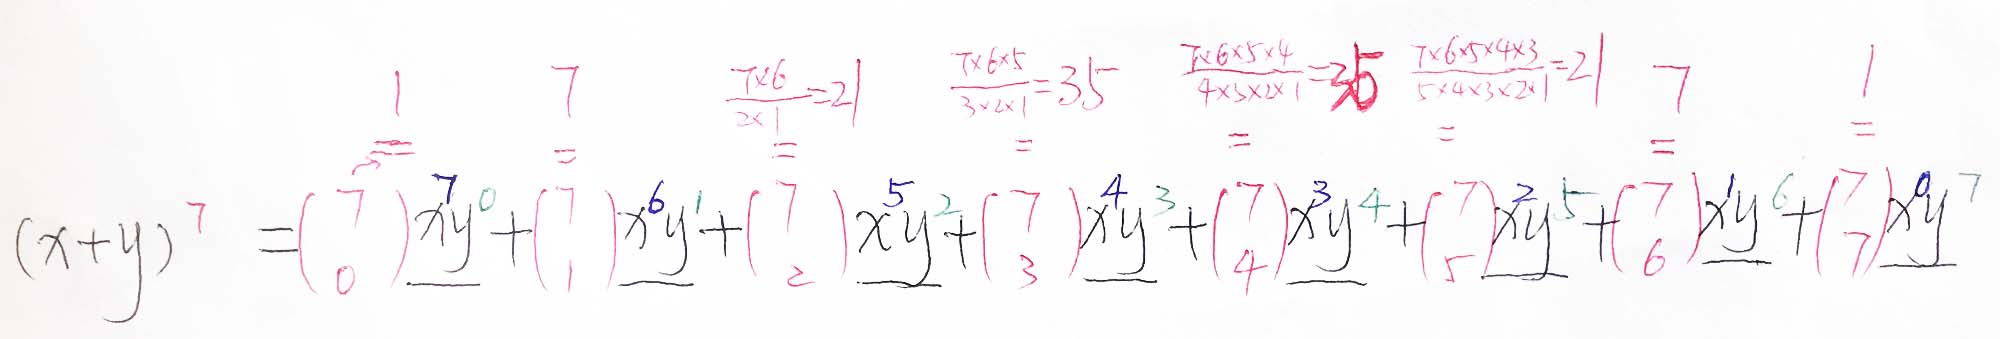 1 7 7×6/2×1=21 7×6×5/3×2×1=35 7×6×5×4/4×3×2×1=35 7×6×5×4×3/5×4×3×2×1=21 7 1
= = = = = = = =
(x+y)^7 = (7 0)x^7y^0+(7 1)x^6y^1+(7 2)x^5y^2+(7 3)x^4y^3+(7 4)x^3y^4+(7 5)x^2y^5+(7 6)x^1y^6+(7 7)x^0y^7